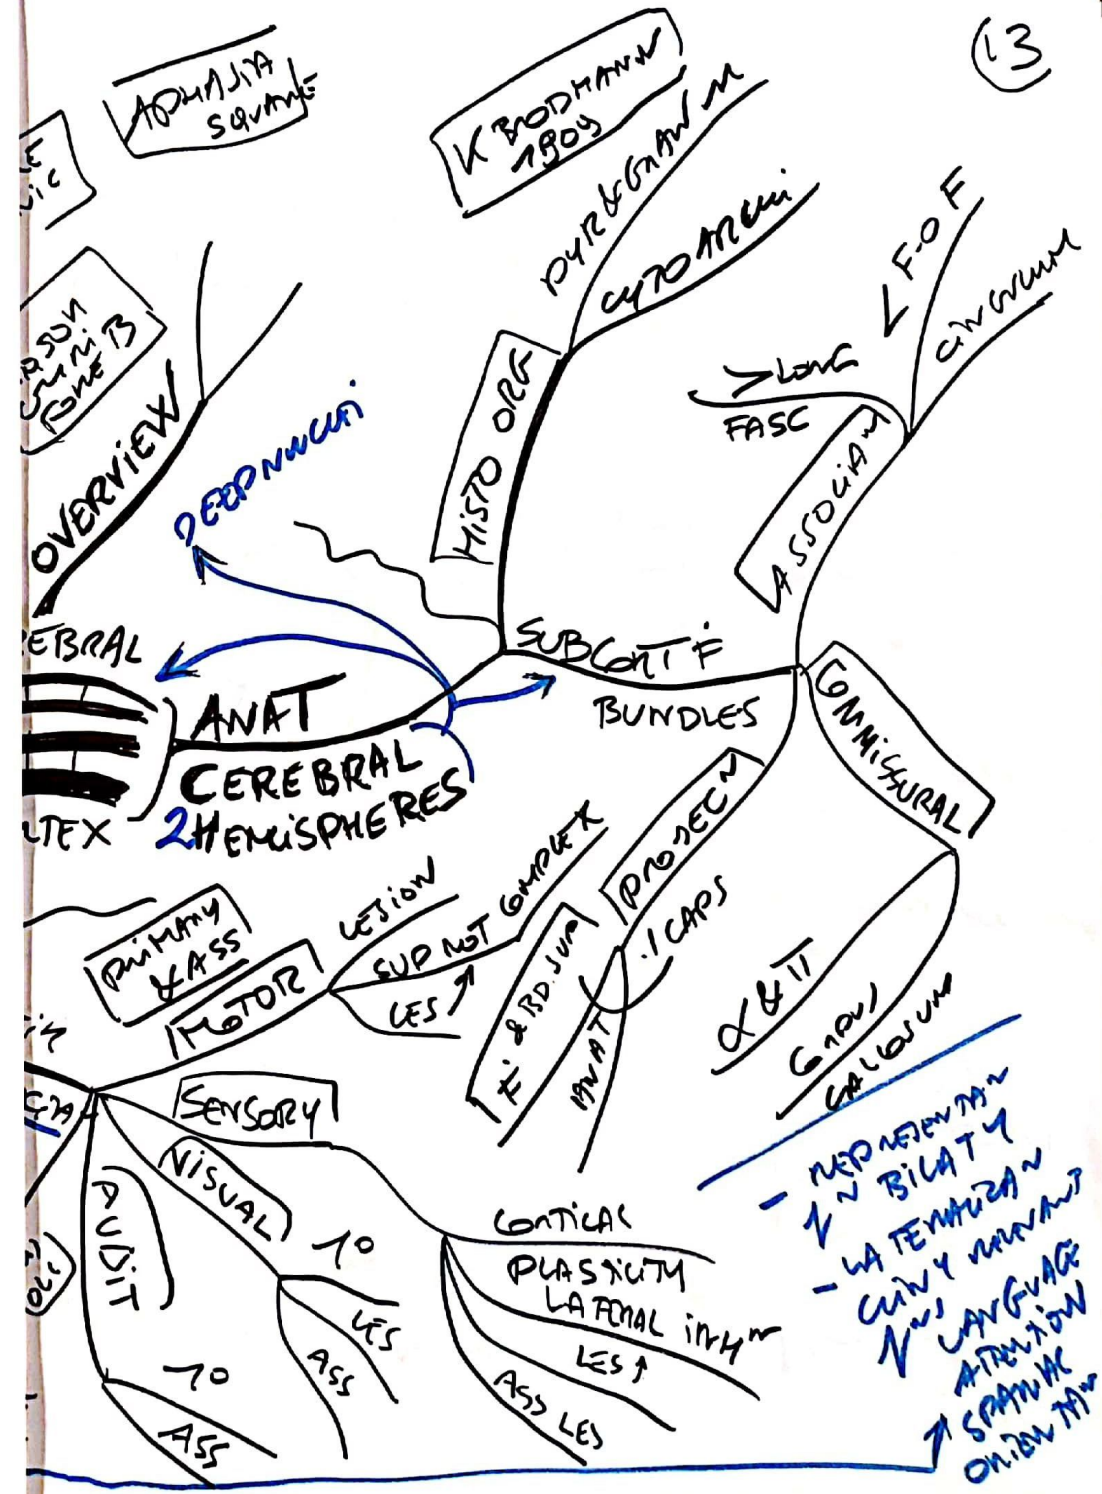 13
APHASIA
SQUARE
K BRODMANN
1909
PYR & GRAN
CYTOARCHI
F-O F
CINGULUM
> LONG
FASC
ASSOCIAN
HISTO ORG
OVERVIEW
DEEP NUCLEI
EBRAL
ANAT
CEREBRAL
2 HEMISPHERES
SUBCORT F
BUNDLES
COMMISSURAL
PROJECN
I CAPS
F & BD. SUM
ANAT
CORPUS
CALLOSUM
PRIMARY
& ASS
MOTOR
LESION
SUP MOT COMPLEX
LES
SENSORY
VISUAL
1°
LES
ASS
AUDIT
1°
ASS
CORTICAL
PLASTICITY
LATERAL INHN
LES ↑
ASS LES
- REPRESENTAN
IN BILATY
- LATERALIZAN
CLINY RELEVANT
LANGUAGE
ATTENTION
SPATIAL
ORIENTAN